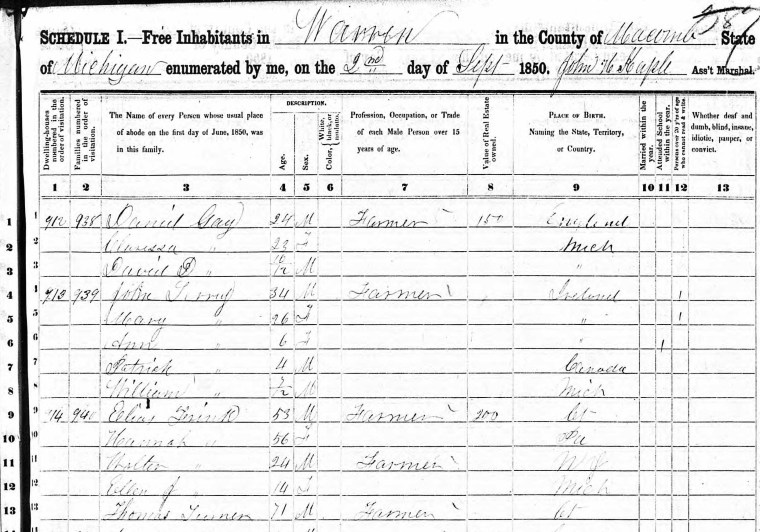 387
SCHEDULE I.—Free Inhabitants in Warren in the County of Macomb State
of Michigan enumerated by me, on the 2nd day of Sept 1850. John H Ass't Marshal.
Dwelling-houses numbered in the order of visitation. Families numbered in the order of visitation. The Name of every Person whose usual place of abode on the first day of June, 1850, was in this family. DESCRIPTION. Age. Sex. Color, White, black, or mulatto. Profession, Occupation, or Trade of each Male Person over 15 years of age. Value of Real Estate owned. PLACE OF BIRTH. Naming the State, Territory, or Country. Married within the year. Attended School within the year. Persons over 20 y'rs of age who cannot read & write. Whether deaf and dumb, blind, insane, idiotic, pauper, or convict.
1 2 3 4 5 6 7 8 9 10 11 12 13
1 1 912 938 Daniel Gay 24 M Farmer 150 England
2 2 Clarissa " 23 F Mich
3 3 David D " 10/12 M "
4 4 913 939 John 34 M Farmer Ireland 1
5 5 Mary " 26 F " 1
6 6 Ann " 6 F " 1
7 7 Patrick " 4 M Canada
8 8 William " M Mich
9 9 914 940 Elias Frink 53 M Farmer 200 Ct
10 10 Hannah " 56 F Pa
11 11 Walter " 24 M Farmer N Y
12 12 Ellen J " 14 F Mich
13 13 Thomas Turner 71 M Farmer Ct